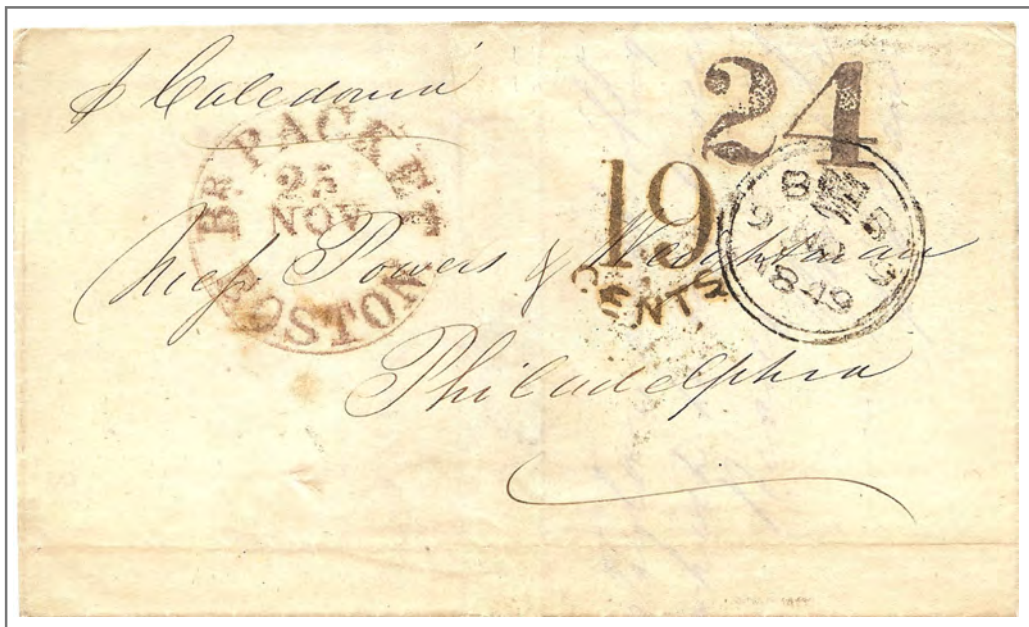 p Caledonia
24
BR. PACKET
25
NOV
BOSTON
19
CENTS
9 NO
1849
Mess Powers & Weightman
Philadelphia